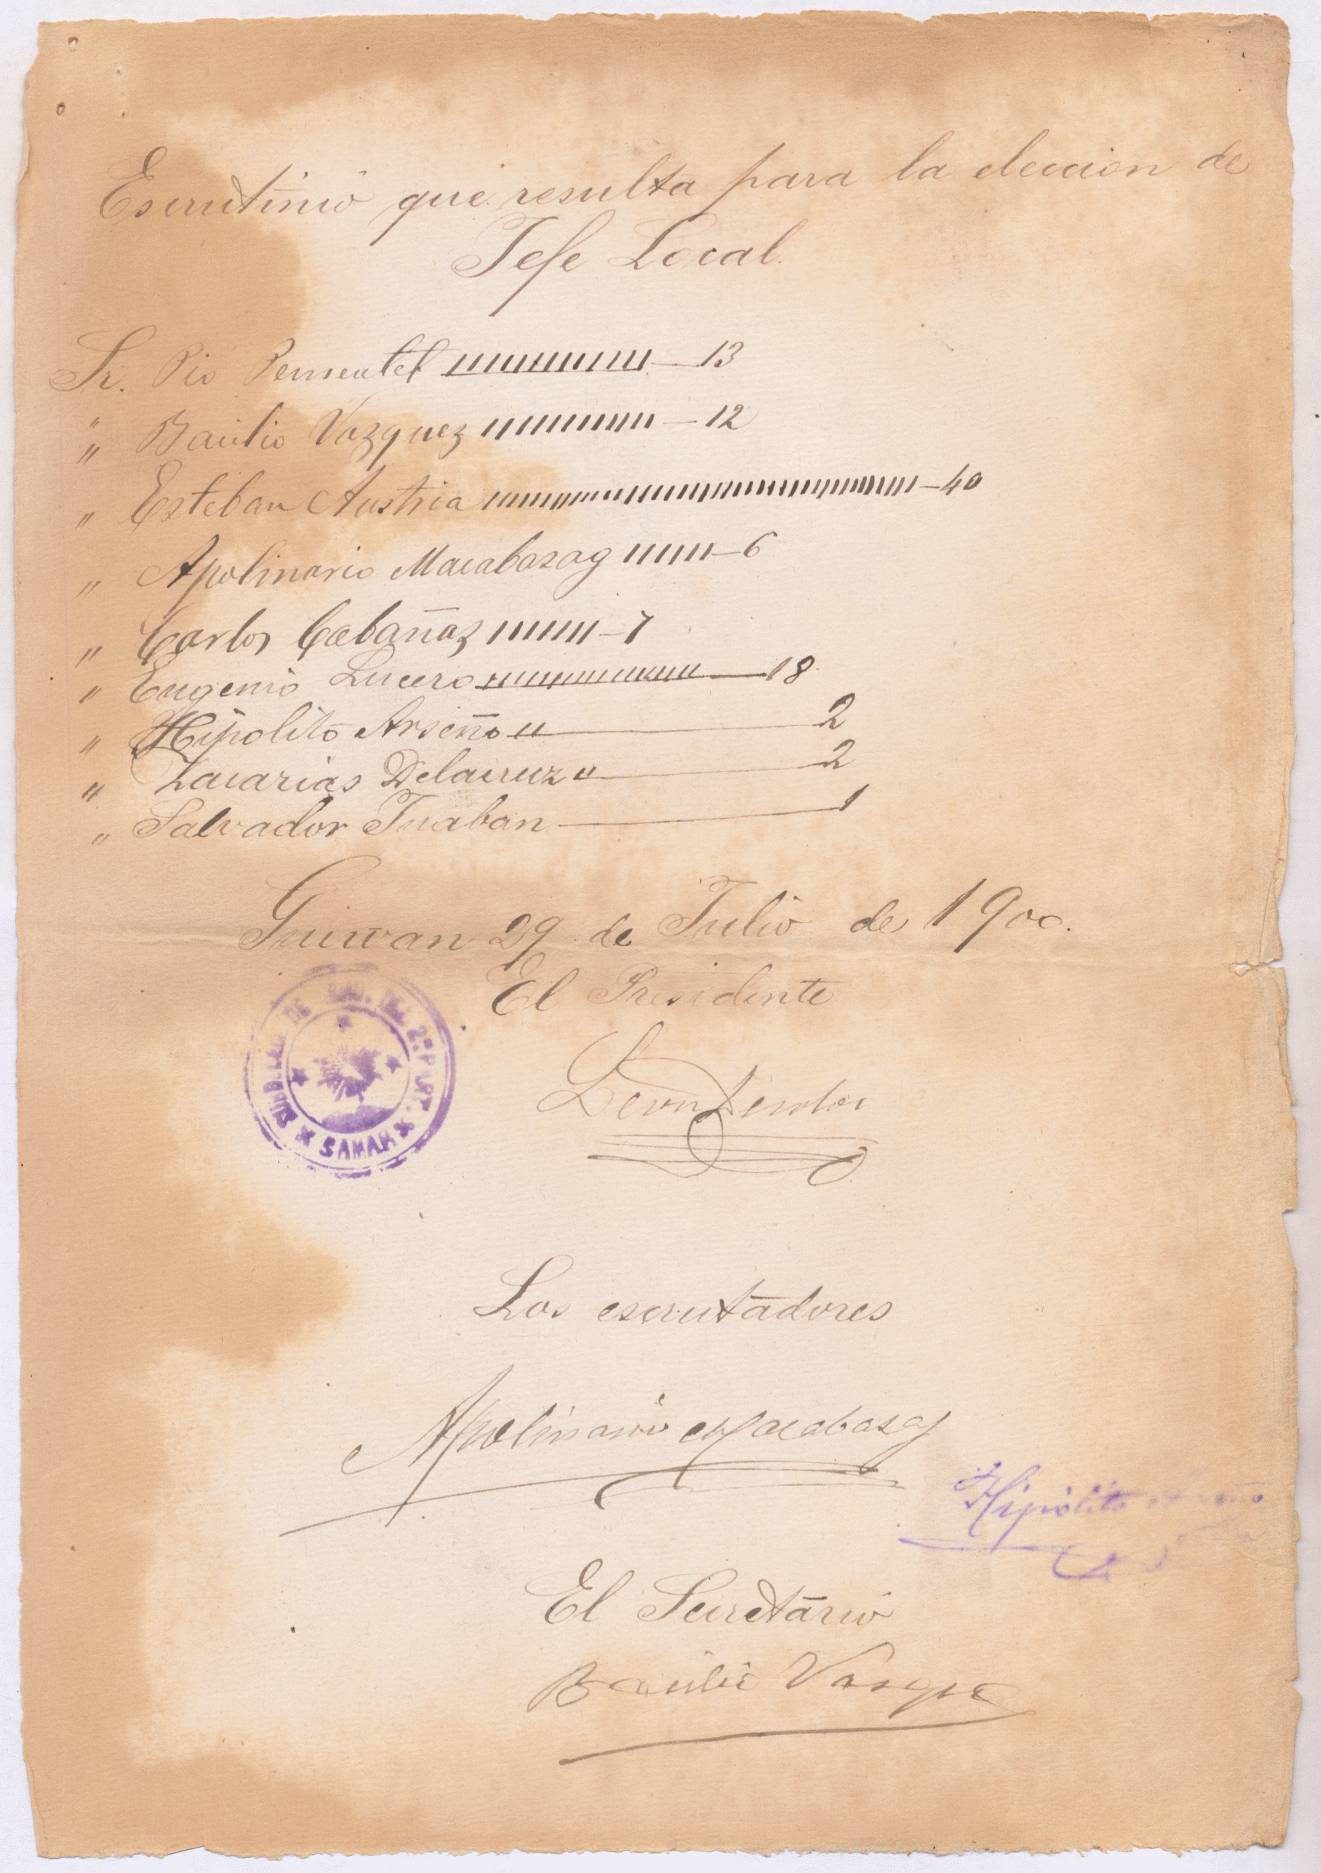 Escrutinio que resulta para la eleccion de
Jefe Local.
Sr. Pio Pementel IIIIIIIIIIIII — 13
" Basilio Vazquez IIIIIIIIIIII — 12
" Esteban Austria IIIIIIIIIIIIIIIIIIIIIIIIIIIIIIIIIIIIIIII — 40
" Apolinario Macabasag IIIIII — 6
" Carlos Cabañas IIIIIII — 7
" Eugenio Lucero IIIIIIIIIIIIIIIIII — 18
" Hipolito Arseño II — 2
" Zacarias Delacruz II — 2
" Salvador Tuaban — 1
Guiwan 29 de Julio de 1900.
El Presidente
DE 2º
SAMAR
Leon
Los escrutadores
Apolinario Macabasag
Hipólito
El Secretario
Basilio Vasque